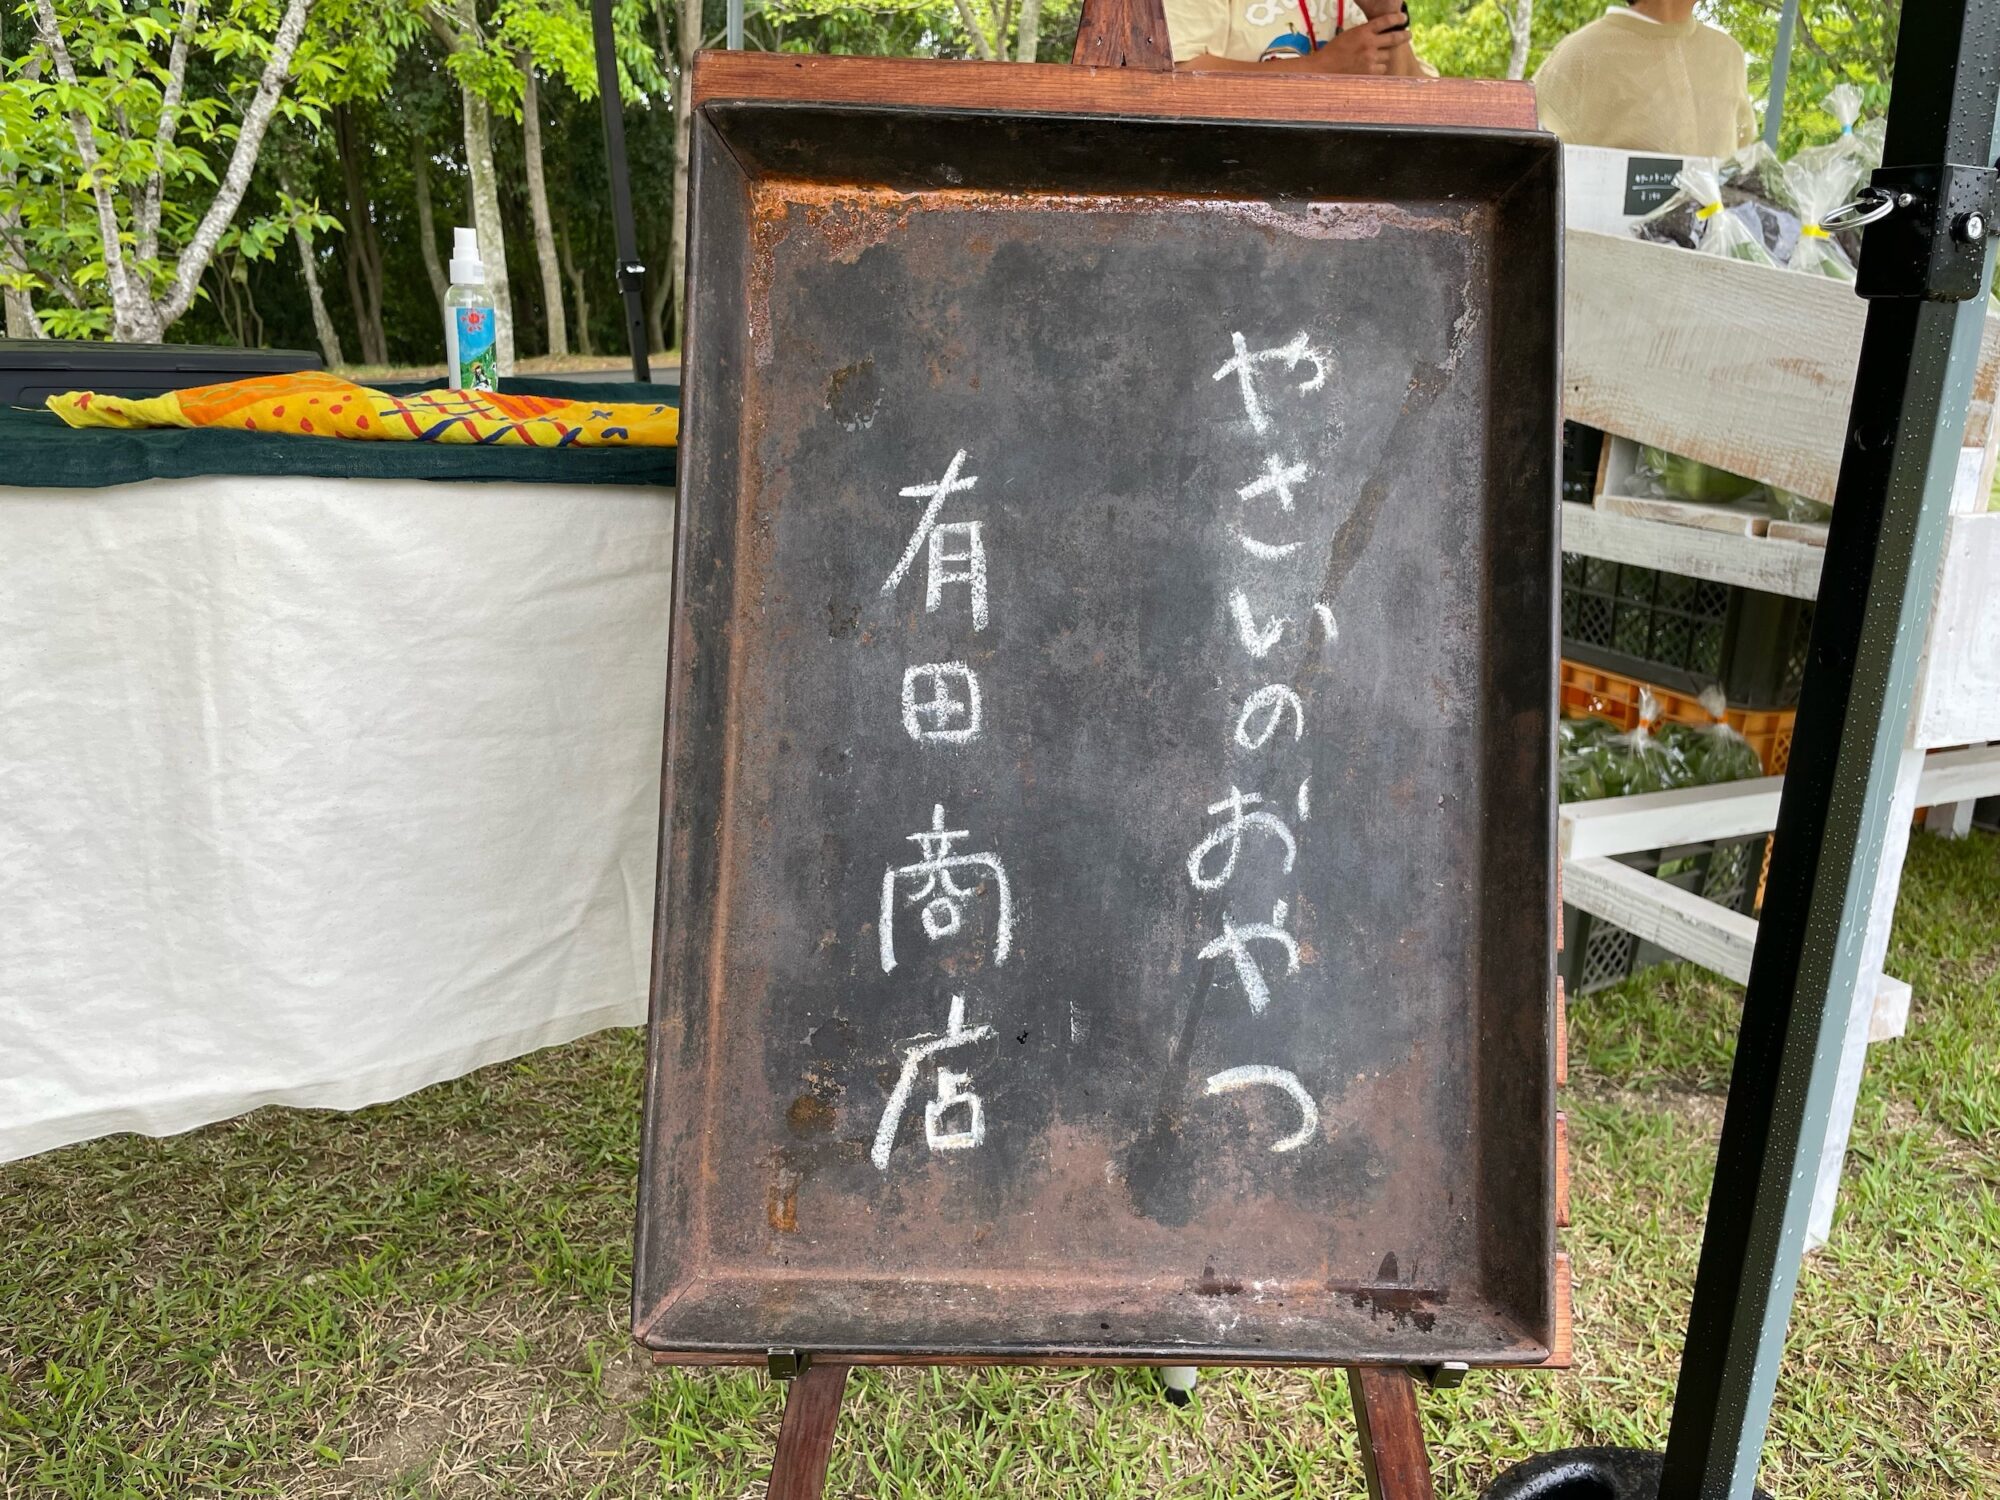 やさいのおやつ
有田商店